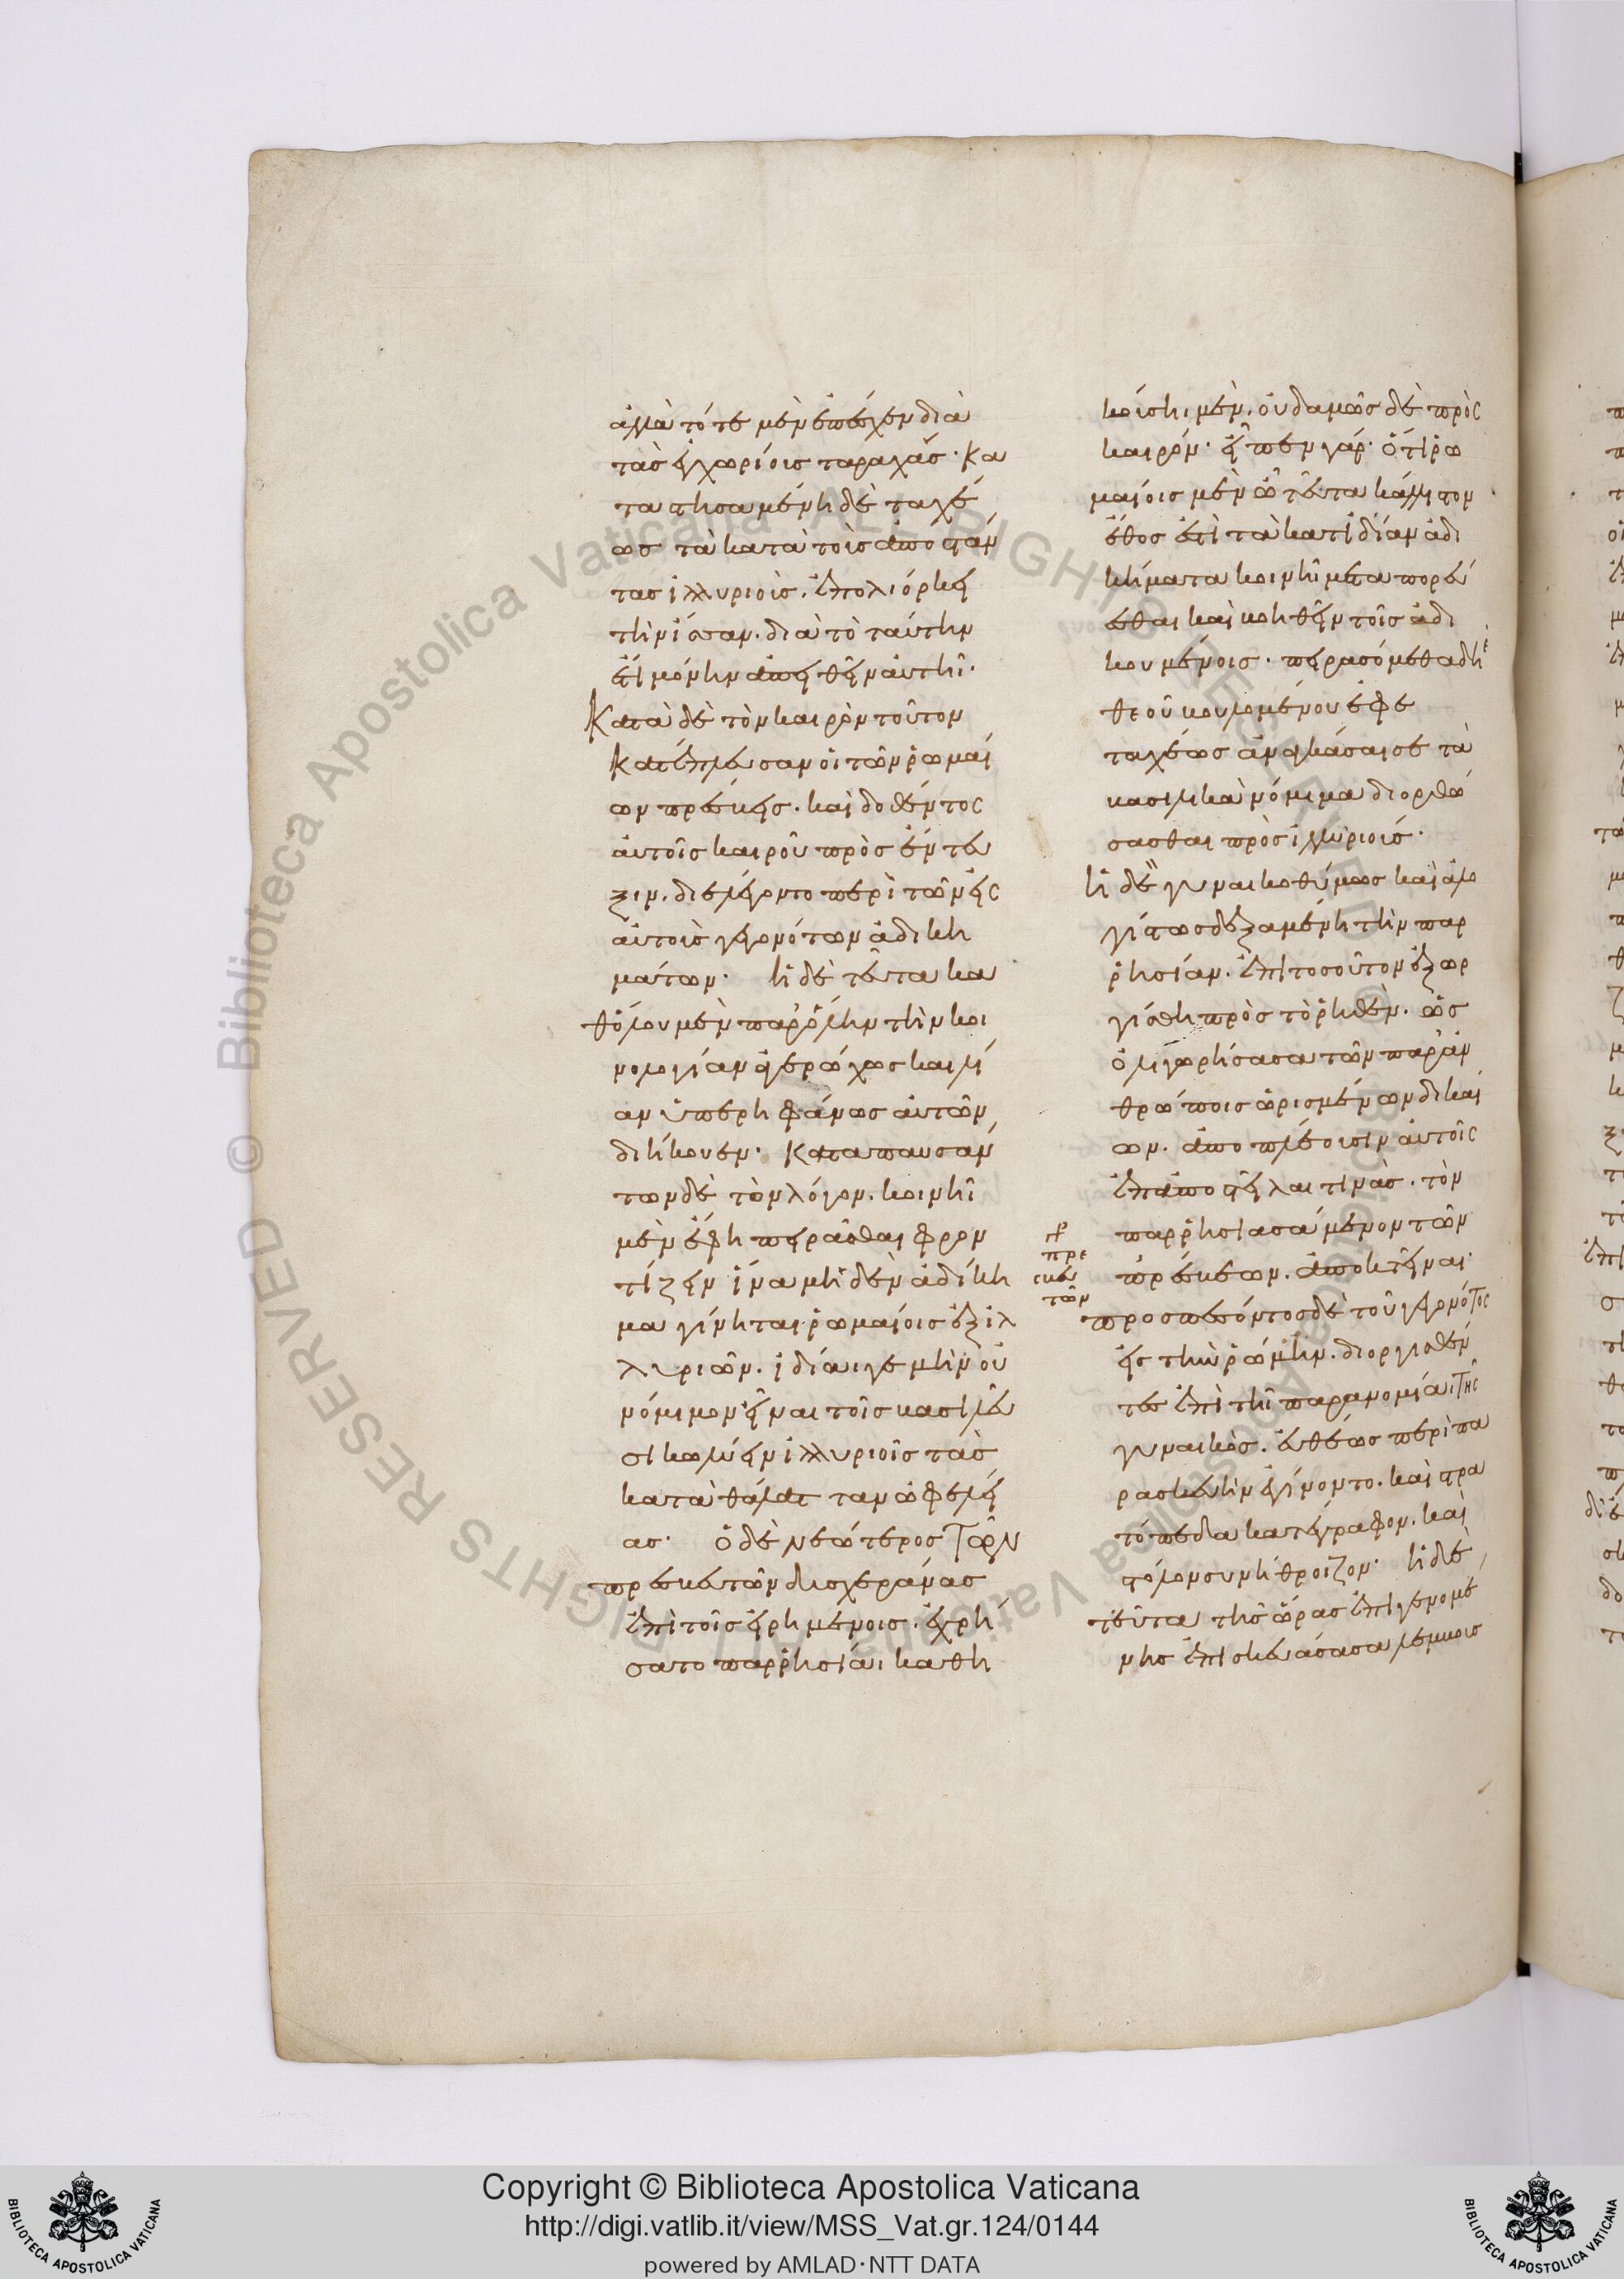 ἀλλὰ τότε μὲν ἐπέσχεν διὰ
τὰς ἐγχωρίοις ταραχάς· κα
ταστησαμένη δὲ ταχέ
ως τὰ κατὰ τοὺς ἀποστάν
τας ἰλλυριοὺς. ἐπολιόρκει
τὴν ἴσσαν. διὰ τὸ ταύτην
ἔτι μόνην ἀπειθεῖν αὐτῆι·
Κατὰ δὲ τὸν καιρὸν τοῦτον
κατέπλευσαν οἱ τῶν ῥωμαί
ων πρέσβεις. καὶ δοθέντος
αὐτοῖς καιροῦ πρὸς ἔντευ
ξιν. διελέγοντο περὶ τῶν εἰς
αὐτοὺς γεγονότων ἀδικη
μάτων· ἡ δὲ τεύτα κα
θόλου μὲν παρ' ὅλην τὴν κοι
νολογίαν ἀγερώχως καὶ λί
αν ὑπερηφάνως αὐτῶν
διήκουεν· καταπαυσάν
των δὲ τὸν λόγον. κοινῆι
μὲν ἔφη πειρᾶσθαι φρον
τίζειν ἵνα μηδὲν ἀδίκη
μα γίνηται ῥωμαίοις ἐξ ἰλ
λυριῶν. ἰδίαι γε μὴν οὐ
νόμιμον εἶναι τοῖς βασιλεῦ
σι κωλύειν ἰλλυριοῖς τὰς
κατὰ θάλατταν ὠφελεί
ας· ὁ δὲ νεώτερος τῶν
πρεσβευτῶν δυσχεράνας
ἐπὶ τοῖς εἰρημένοις. ἐχρή
σατο παρρησίαι καθη
κούσηι μέν. οὐδαμῶς δὲ πρὸς
καιρόν· εἶπεν γάρ· ὅτι ῥω
μαίοις μὲν ὦ τεύτα κάλλιστον
ἔθος ἐστὶ τὰ κατ' ἰδίαν ἀδι
κήματα κοινῆι μεταπορεύ
εσθαι καὶ βοηθεῖν τοῖς ἀδι
κουμένοις· πειρασόμεθα δὴ
θεοῦ βουλομένου σφε
ταχέως ἀναγκάσαι σε τὰ
βασιλικὰ νόμιμα διορθώ
σασθαι πρὸς ἰλλυριούς·
ἡ δὲ γυναικοθύμως καὶ ἀλο
γίστως δεξαμένη τὴν παρ
ρησίαν. ἐπὶ τοσοῦτον ἐξωρ
γίσθη πρὸς τὸ ῥηθέν. ὡς
ὀλιγωρήσασα τῶν παρ' ἀν
θρώποις ὡρισμένων δικαί
ων. ἀποπλέουσιν αὐτοῖς
ἐπαποστεῖλαι τινὰς. τὸν
παρρησιασάμενον τῶν
πρέσβεων. ἀποκτεῖναι·
προσπεσόντος δὲ τοῦ γεγονότος
εἰς τὴν ῥώμην. διοργισθέν
τες ἐπὶ τῆι παρανομίαι τῆς
γυναικός. εὐθέως περὶ πα
ρασκευὴν ἐγίνοντο. καὶ στρα
τόπεδα κατέγραφον. καὶ
στόλον συνήθροιζον· ἡ δὲ
τεῦτα τῆς ὥρας ἐπιγενομέ
νης ἐπισκευάσασα λέμβους
πρε
σβευ
τῶν
Copyright © Biblioteca Apostolica Vaticana
http://digi.vatlib.it/view/MSS_Vat.gr.124/0144
powered by AMLAD·NTT DATA
BIBLIOTECA APOSTOLICA VATICANA
BIBLIOTECA APOSTOLICA VATICANA